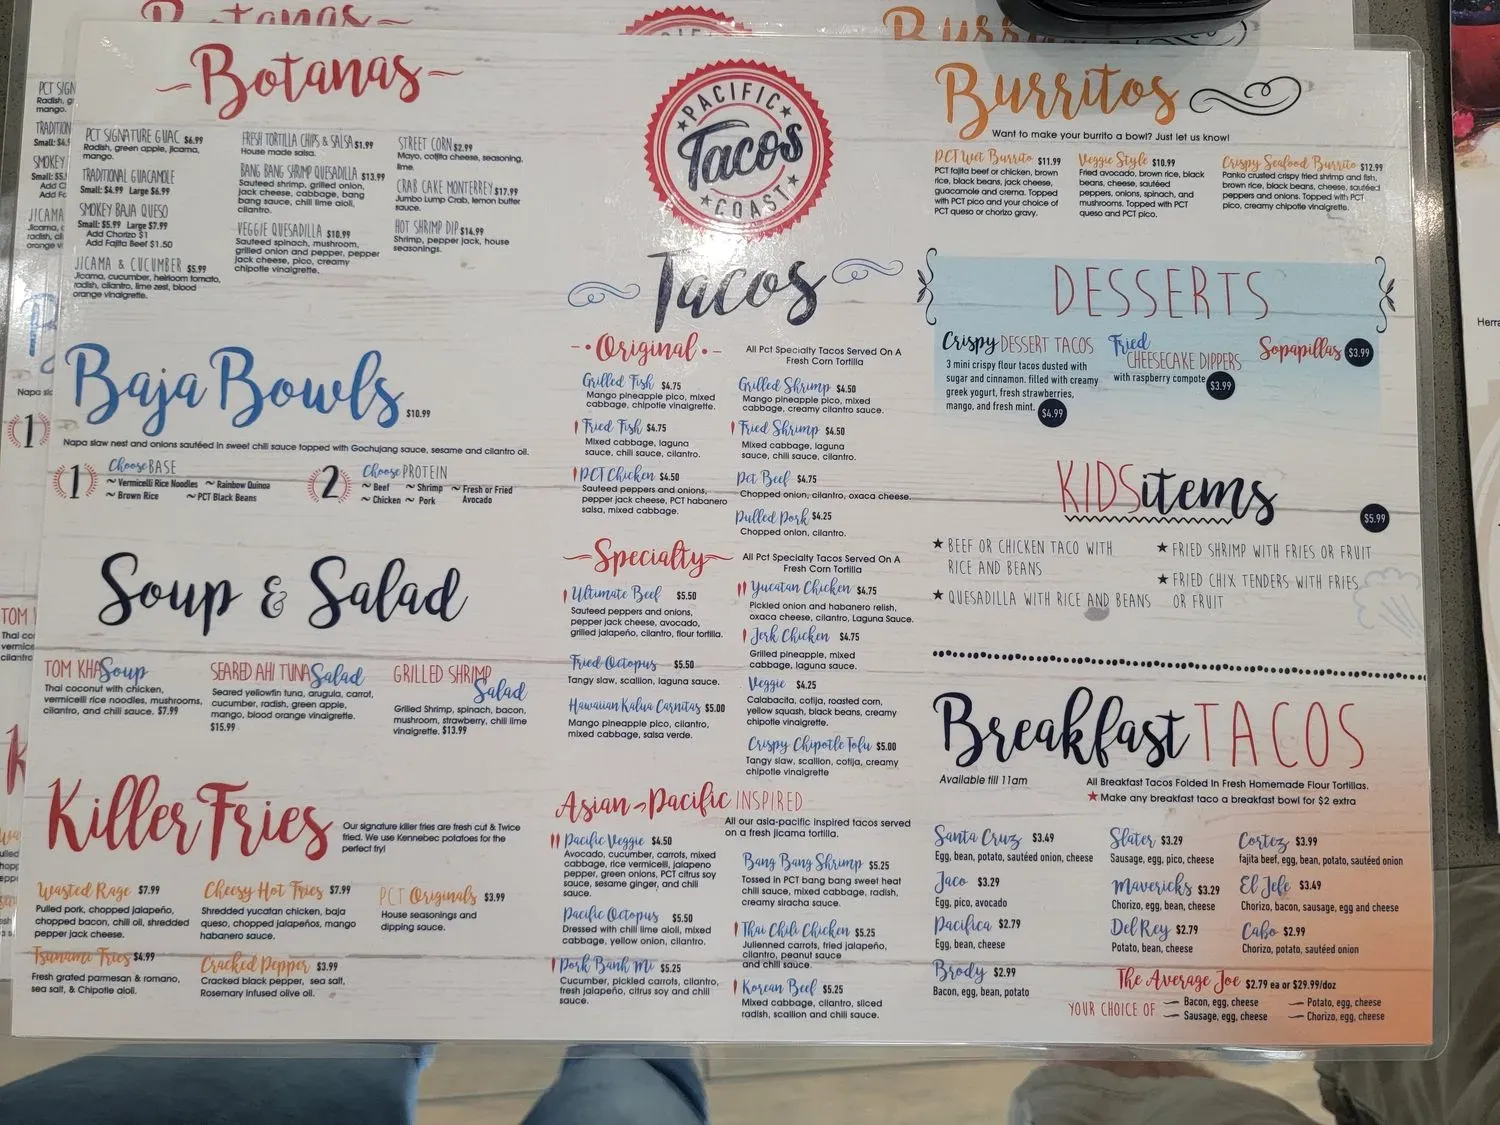 Botanas
PCT SIGNATURE GUAC $6.99
Radish, green apple, jicama,
mango.
TRADITIONAL GUACAMOLE
Small: $4.99 Large $6.99
SMOKEY BAJA QUESO
Small: $5.99 Large $7.99
Add Chorizo $1
Add Fajita Beef $1.50
JICAMA & CUCUMBER $5.99
Jicama, cucumber, heirloom tomato,
radish, cilantro, lime zest, blood
orange vinaigrette.
FRESH TORTILLA CHIPS & SALSA $1.99
House made salsa.
BANG BANG SHRIMP QUESADILLA $13.99
Sauteed shrimp, grilled onion,
jack cheese, cabbage, bang
bang sauce, chili lime aioli,
cilantro.
VEGGIE QUESADILLA $10.99
Sauteed spinach, mushroom,
grilled onion and pepper, pepper
jack cheese, pico, creamy
chipotle vinaigrette.
STREET CORN $2.99
Mayo, cotjita cheese, seasoning,
lime.
CRAB CAKE MONTERREY $17.99
Jumbo Lump Crab, lemon butter
sauce.
HOT SHRIMP DIP $14.99
Shrimp, pepper jack, house
seasonings.
Baja Bowls $10.99
Napa slaw nest and onions sautéed in sweet chili sauce topped with Gochujang sauce, sesame and cilantro oil.
1 Choose BASE
~ Vermicelli Rice Noodles ~ Rainbow Quinoa
~ Brown Rice ~ PCT Black Beans
2 Choose PROTEIN
~ Beef ~ Shrimp ~ Fresh or Fried
~ Chicken ~ Pork Avocado
Soup & Salad
TOM KHA Soup
Thai coconut with chicken,
vermicelli rice noodles, mushrooms,
cilantro, and chili sauce. $7.99
SEARED AHI TUNA Salad
Seared yellowfin tuna, arugula, carrot,
cucumber, radish, green apple,
mango, blood orange vinaigrette.
$15.99
GRILLED SHRIMP
Salad
Grilled Shrimp, spinach, bacon,
mushroom, strawberry, chili lime
vinaigrette. $13.99
Killer Fries
Our signature killer fries are fresh cut & Twice
fried. We use Kennebec potatoes for the
perfect fry!
Wasted Rage $7.99
Pulled pork, chopped jalapeño,
chopped bacon, chili oil, shredded
pepper jack cheese.
Tsunami Fries $4.99
Fresh grated parmesan & romano,
sea salt, & Chipotle aioli.
Cheesy Hot Fries $7.99
Shredded yucatan chicken, baja
queso, chopped jalapeños, mango
habanero sauce.
Cracked Pepper $3.99
Cracked black pepper, sea salt,
Rosemary infused olive oil.
PCT Originals $3.99
House seasonings and
dipping sauce.
PACIFIC
Tacos
COAST
Tacos
Original
All Pct Specialty Tacos Served On A
Fresh Corn Tortilla
Grilled Fish $4.75
Mango pineapple pico, mixed
cabbage, chipotle vinaigrette.
Fried Fish $4.75
Mixed cabbage, laguna
sauce, chili sauce, cilantro.
PCT Chicken $4.50
Sauteed peppers and onions,
pepper jack cheese, PCT habanero
salsa, mixed cabbage.
Grilled Shrimp $4.50
Mango pineapple pico, mixed
cabbage, creamy cilantro sauce.
Fried Shrimp $4.50
Mixed cabbage, laguna
sauce, chili sauce, cilantro.
Pct Beef $4.75
Chopped onion, cilantro, oxaca cheese.
Pulled Pork $4.25
Chopped onion, cilantro.
Specialty
All Pct Specialty Tacos Served On A
Fresh Corn Tortilla
Ultimate Beef $5.50
Sauteed peppers and onions,
pepper jack cheese, avocado,
grilled jalapeño, cilantro, flour tortilla.
Fried Octopus $5.50
Tangy slaw, scallion, laguna sauce.
Hawaiian Kalua Carnitas $5.00
Mango pineapple pico, cilantro,
mixed cabbage, salsa verde.
Yucatan Chicken $4.75
Pickled onion and habanero relish,
oxaca cheese, cilantro, Laguna Sauce.
Jerk Chicken $4.75
Grilled pineapple, mixed
cabbage, laguna sauce.
Veggie $4.25
Calabacita, cotija, roasted corn,
yellow squash, black beans, creamy
chipotle vinaigrette.
Crispy Chipotle Tofu $5.00
Tangy slaw, scallion, cotija, creamy
chipotle vinaigrette
Asian-Pacific INSPIRED
All our asia-pacific inspired tacos served
on a fresh jicama tortilla.
Pacific Veggie $4.50
Avocado, cucumber, carrots, mixed
cabbage, rice vermicelli, jalapeno
pepper, green onions, PCT citrus soy
sauce, sesame ginger, and chili
sauce.
Pacific Octopus $5.50
Dressed with chili lime aioli, mixed
cabbage, yellow onion, cilantro.
Pork Banh Mi $5.25
Cucumber, pickled carrots, cilantro,
fresh jalapeño, citrus soy and chili
sauce.
Bang Bang Shrimp $5.25
Tossed in PCT bang bang sweet heat
chili sauce, mixed cabbage, radish,
creamy siracha sauce.
Thai Chili Chicken $5.25
Julienned carrots, fried jalapeño,
cilantro, peanut sauce
and chili sauce.
Korean Beef $5.25
Mixed cabbage, cilantro, sliced
radish, scallion and chili sauce.
Burritos
Want to make your burrito a bowl? Just let us know!
PCT Wet Burrito $11.99
PCT fajita beef or chicken, brown
rice, black beans, jack cheese,
guacamole and crema. Topped
with PCT pico and your choice of
PCT queso or chorizo gravy.
Veggie Style $10.99
Fried avocado, brown rice, black
beans, cheese, sautéed
peppers, onions, spinach, and
mushrooms. Topped with PCT
queso and PCT pico.
Crispy Seafood Burrito $12.99
Panko crusted crispy fried shrimp and fish,
brown rice, black beans, cheese, sautéed
peppers and onions. Topped with PCT
pico, creamy chipotle vinaigrette.
DESSERTS
Crispy DESSERT TACOS
3 mini crispy flour tacos dusted with
sugar and cinnamon. filled with creamy
greek yogurt, fresh strawberries,
mango, and fresh mint. $4.99
Fried
CHEESECAKE DIPPERS
with raspberry compote $3.99
Sopapillas $3.99
KIDS items
$5.99
★ BEEF OR CHICKEN TACO WITH
RICE AND BEANS
★ QUESADILLA WITH RICE AND BEANS
★ FRIED SHRIMP WITH FRIES OR FRUIT
★ FRIED CHIX TENDERS WITH FRIES
OR FRUIT
Breakfast TACOS
Available till 11am
All Breakfast Tacos Folded In Fresh Homemade Flour Tortillas.
★ Make any breakfast taco a breakfast bowl for $2 extra
Santa Cruz $3.49
Egg, bean, potato, sautéed onion, cheese
Jaco $3.29
Egg, pico, avocado
Pacifica $2.79
Egg, bean, cheese
Brody $2.99
Bacon, egg, bean, potato
Slater $3.29
Sausage, egg, pico, cheese
Mavericks $3.29
Chorizo, egg, bean, cheese
Del Rey $2.79
Potato, bean, cheese
Cortez $3.99
fajita beef, egg, bean, potato, sautéed onion
El Jefe $3.49
Chorizo, bacon, sausage, egg and cheese
Cabo $2.99
Chorizo, potato, sautéed onion
The Average Joe $2.79 ea or $29.99/doz
YOUR CHOICE OF
Bacon, egg, cheese
Sausage, egg, cheese
Potato, egg, cheese
Chorizo, egg, cheese